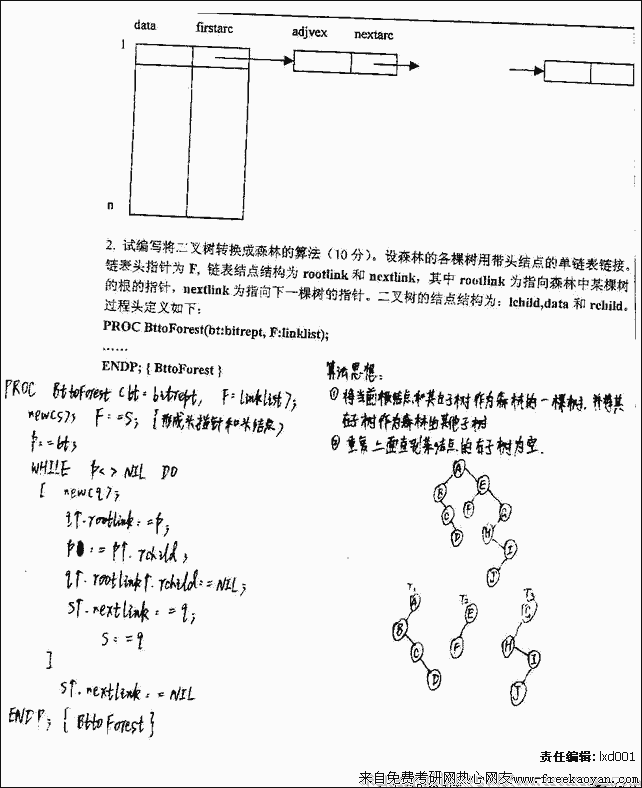 data firstarc adjvex nextarc
1
n
2. 试编写将二叉树转换成森林的算法（10 分）。设森林的各棵树用带头结点的单链表链接。
链表头指针为 F, 链表结点结构为 rootlink 和 nextlink，其中 rootlink 为指向森林中某棵树
的根的指针，nextlink 为指向下一棵树的指针。二叉树的结点结构为：lchild,data 和 rchild。
过程头定义如下：
PROC BttoForest(bt:bitrept, F:linklist);
……
ENDP; { BttoForest }
PROC BttoForest (bt: bitrept, F: linklist);
new(s); F:=s; {形成头指针和头结点}
p:=bt;
WHILE p<>NIL DO
[ new(q);
q↑.rootlink:=p;
p:=p↑.rchild;
q↑.rootlink↑.rchild:=NIL;
s↑.nextlink:=q;
s:=q
]
s↑.nextlink:=NIL
ENDP; {BttoForest}
算法思想:
① 将当前根结点和其左子树作为森林的一棵树, 并将其
右子树作为森林的其他子树
② 重复上面直到某结点的右子树为空.
A
B E
C F G
D H
I
J
T1 T2 T3
A E G
B F H
C I
D J
责任编辑: lxd001
来自免费考研网热心网友www.freekaoyan.com